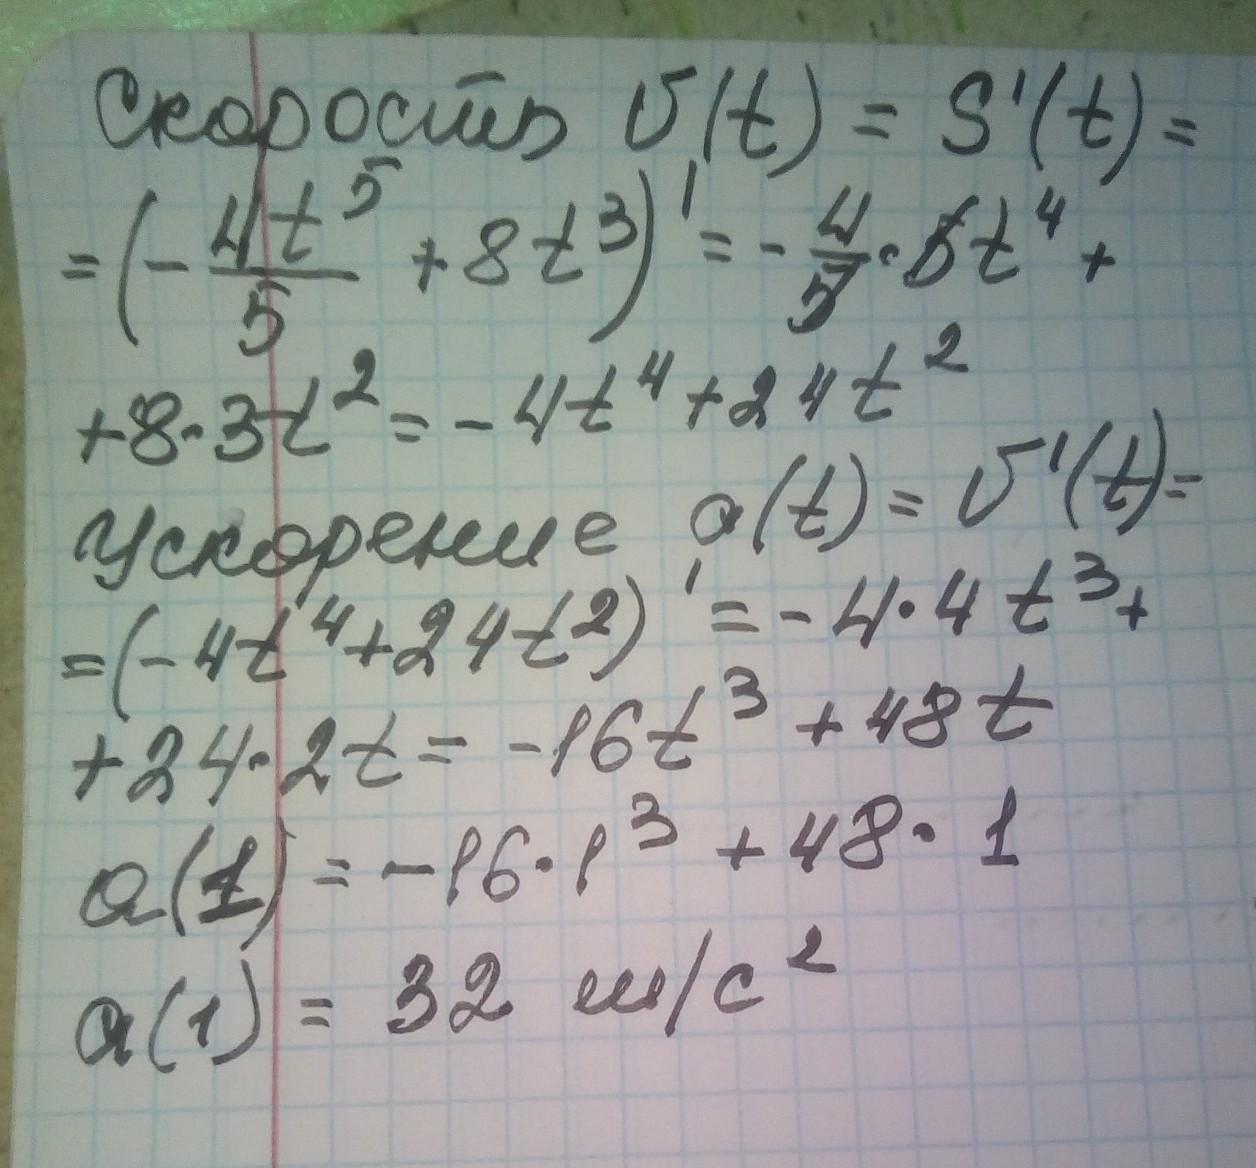 Скорость v(t) = S'(t) =
= (-4t⁵/5 + 8t³)' = -4/5 · 5t⁴ +
+8·3t² = -4t⁴+24t²
Ускорение a(t) = v'(t) =
= (-4t⁴+24t²)' = -4·4t³+
+24·2t = -16t³ +48t
a(1) = -16·1³ + 48·1
a(1) = 32 м/с²